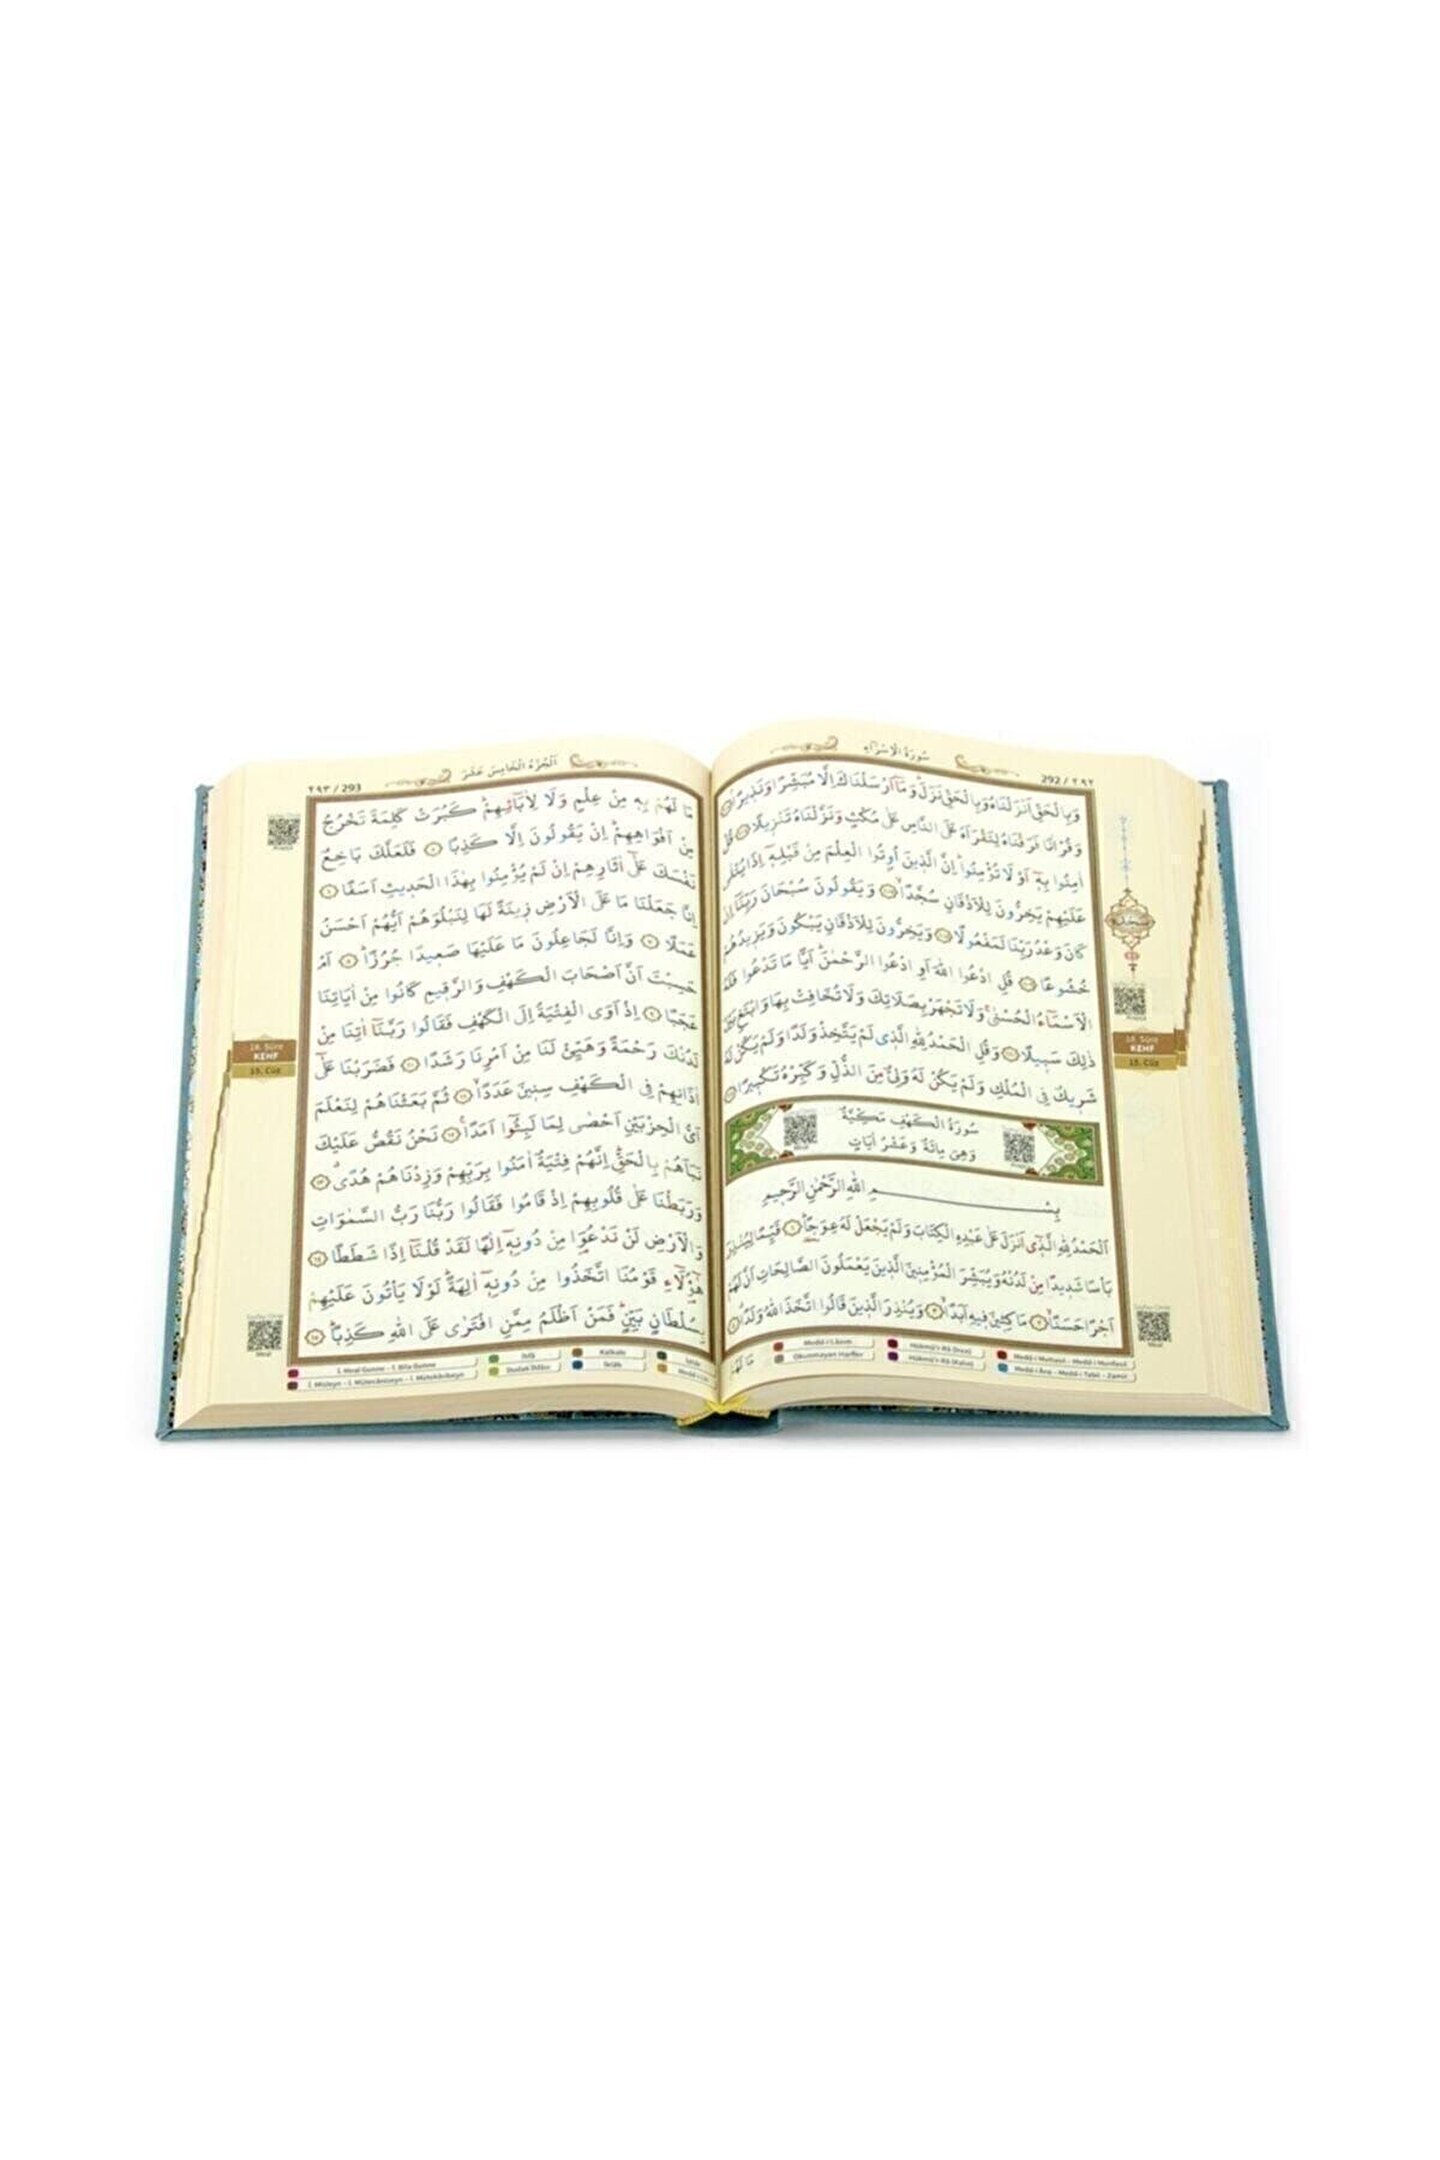 292 / ٢٩٢
سُورَةُ الْاِسْرَاءِ
وَبِالْحَقِّ اَنْزَلْنَاهُ وَبِالْحَقِّ نَزَلَۜ وَمَٓا اَرْسَلْنَاكَ اِلَّا مُبَشِّرًا وَنَذ۪يرًاۢ
وَقُرْاٰنًا فَرَقْنَاهُ لِتَقْرَاَهُ عَلَى النَّاسِ عَلٰى مُكْثٍ وَنَزَّلْنَاهُ تَنْز۪يلًا قُلْ
اٰمِنُوا بِه۪ٓ اَوْ لَا تُؤْمِنُواۜ اِنَّ الَّذ۪ينَ اُو۫تُوا الْعِلْمَ مِنْ قَبْلِه۪ٓ اِذَا يُتْلٰى
عَلَيْهِمْ يَخِرُّونَ لِلْاَذْقَانِ سُجَّدًاۙ وَيَقُولُونَ سُبْحَانَ رَبِّنَٓا اِنْ
كَانَ وَعْدُ رَبِّنَا لَمَفْعُولًا وَيَخِرُّونَ لِلْاَذْقَانِ يَبْكُونَ وَيَز۪يدُهُمْ
خُشُوعًا قُلِ ادْعُوا اللّٰهَ اَوِ ادْعُوا الرَّحْمٰنَۜ اَيًّا مَا تَدْعُوا فَلَهُ
الْاَسْمَٓاءُ الْحُسْنٰىۚ وَلَا تَجْهَرْ بِصَلَاتِكَ وَلَا تُخَافِتْ بِهَا وَابْتَغِ بَيْنَ
ذٰلِكَ سَب۪يلًا وَقُلِ الْحَمْدُ لِلّٰهِ الَّذ۪ي لَمْ يَتَّخِذْ وَلَدًا وَلَمْ يَكُنْ لَهُ
شَر۪يكٌ فِي الْمُلْكِ وَلَمْ يَكُنْ لَهُ وَلِيٌّ مِنَ الذُّلِّ وَكَبِّرْهُ تَكْب۪يرًا
سُورَةُ الْكَهْفِ مَكِّيَّةٌ
وَهِيَ مِائَةٌ وَعَشْرُ اٰيَاتٍ
بِسْمِ اللّٰهِ الرَّحْمٰنِ الرَّح۪يمِ
اَلْحَمْدُ لِلّٰهِ الَّذ۪ٓي اَنْزَلَ عَلٰى عَبْدِهِ الْكِتَابَ وَلَمْ يَجْعَلْ لَهُ عِوَجًاۜ قَيِّمًا لِيُنْذِرَ
بَأْسًا شَد۪يدًا مِنْ لَدُنْهُ وَيُبَشِّرَ الْمُؤْمِن۪ينَ الَّذ۪ينَ يَعْمَلُونَ الصَّالِحَاتِ اَنَّ لَهُمْ
اَجْرًا حَسَنًاۙ مَاكِث۪ينَ ف۪يهِ اَبَدًاۙ وَيُنْذِرَ الَّذ۪ينَ قَالُوا اتَّخَذَ اللّٰهُ وَلَدًاۗ
مَا لَهُمْ
18. Sûre
KEHF
15. Cüz
Medd-i Lâzım
Okunmayan Harfler
Hükmü'r-Râ (İnce)
Hükmü'r-Râ (Kalın)
Medd-i Muttasıl - Medd-i Munfasıl
Medd-i Ârız - Medd-i Tabii - Zamir
٢٩٣ / 293
اَلْجُزْءُ الْخَامِسَ عَشَرَ
مَا لَهُمْ بِه۪ مِنْ عِلْمٍ وَلَا لِاٰبَٓائِهِمْۜ كَبُرَتْ كَلِمَةً تَخْرُجُ
مِنْ اَفْوَاهِهِمْۜ اِنْ يَقُولُونَ اِلَّا كَذِبًا فَلَعَلَّكَ بَاخِعٌ
نَفْسَكَ عَلٰٓى اٰثَارِهِمْ اِنْ لَمْ يُؤْمِنُوا بِهٰذَا الْحَد۪يثِ اَسَفًا
اِنَّا جَعَلْنَا مَا عَلَى الْاَرْضِ ز۪ينَةً لَهَا لِنَبْلُوَهُمْ اَيُّهُمْ اَحْسَنُ
عَمَلًا وَاِنَّا لَجَاعِلُونَ مَا عَلَيْهَا صَع۪يدًا جُرُزًاۜ اَمْ
حَسِبْتَ اَنَّ اَصْحَابَ الْكَهْفِ وَالرَّق۪يمِ كَانُوا مِنْ اٰيَاتِنَا
عَجَبًا اِذْ اَوَى الْفِتْيَةُ اِلَى الْكَهْفِ فَقَالُوا رَبَّنَٓا اٰتِنَا مِنْ
لَدُنْكَ رَحْمَةً وَهَيِّئْ لَنَا مِنْ اَمْرِنَا رَشَدًا فَضَرَبْنَا عَلٰٓى
اٰذَانِهِمْ فِي الْكَهْفِ سِن۪ينَ عَدَدًاۙ ثُمَّ بَعَثْنَاهُمْ لِنَعْلَمَ
اَيُّ الْحِزْبَيْنِ اَحْصٰى لِمَا لَبِثُٓوا اَمَدًا۟ نَحْنُ نَقُصُّ عَلَيْكَ
نَبَاَهُمْ بِالْحَقِّۜ اِنَّهُمْ فِتْيَةٌ اٰمَنُوا بِرَبِّهِمْ وَزِدْنَاهُمْ هُدًىۗ
وَرَبَطْنَا عَلٰى قُلُوبِهِمْ اِذْ قَامُوا فَقَالُوا رَبُّنَا رَبُّ السَّمٰوَاتِ
وَالْاَرْضِ لَنْ نَدْعُوَ۬ا مِنْ دُونِه۪ٓ اِلٰهًا لَقَدْ قُلْنَٓا اِذًا شَطَطًا
هٰٓؤُ۬لَٓاءِ قَوْمُنَا اتَّخَذُوا مِنْ دُونِه۪ٓ اٰلِهَةًۜ لَوْلَا يَأْتُونَ عَلَيْهِمْ
بِسُلْطَانٍ بَيِّنٍۜ فَمَنْ اَظْلَمُ مِمَّنِ افْتَرٰى عَلَى اللّٰهِ كَذِبًاۜ
18. Sûre
KEHF
15. Cüz
İ. Meal Gunne - İ. Bila Gunne
İ. Misleyn - İ. Mütecâniseyn - İ. Mütekâribeyn
Dudak İhfâsı
Kalkale
İklâb